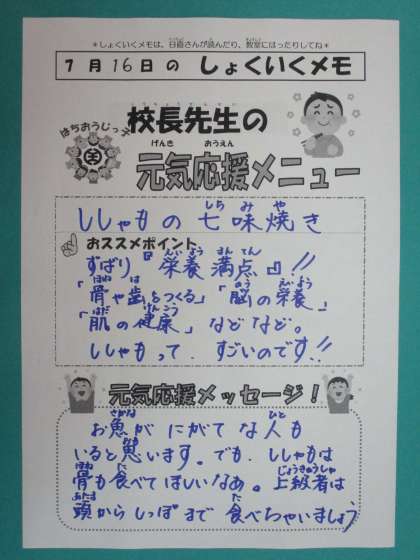 ＊しょくいくメモは、日直さんが読んだり、教室にはったりしてね＊
7月16日の しょくいくメモ
はちおうじっ子
校長先生の
元気応援メニュー
ししゃもの 七味焼き
おススメポイント
ずばり『栄養満点』!!
「骨や歯をつくる」「脳の栄養」
「肌の健康」などなど。
ししゃもって、すごいのです!!
元気応援メッセージ！
お魚が にがてな人も
いると思います。でも、ししゃもは
骨も食べてほしいなあ。上級者は
頭からしっぽまで 食べちゃいましょう